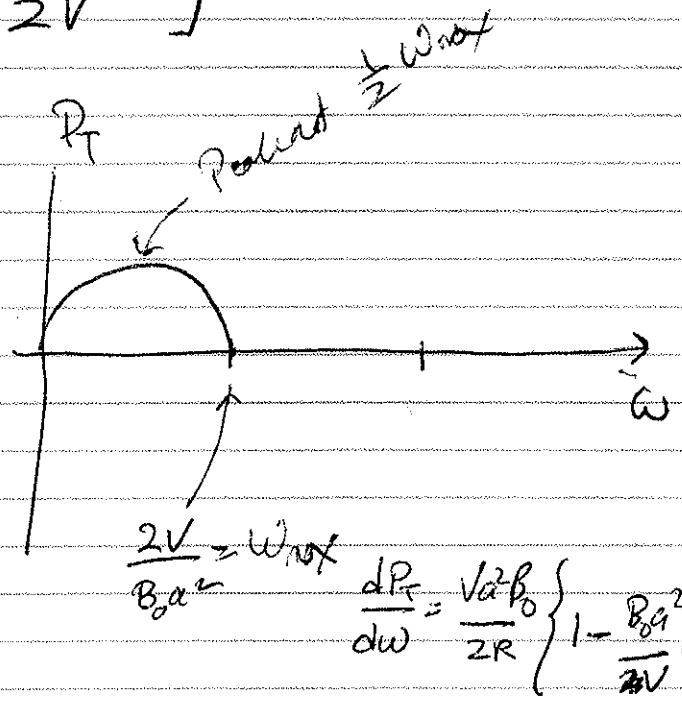 2V ]
P_T
Peak at 1/2 ω_max
ω
2V/(B₀a²) = ω_max
dP_T/dω = Va²B₀/2R { 1 - B₀a²/